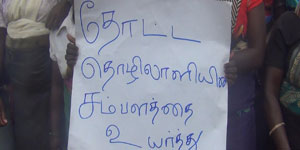 தோட்ட
தொழிலாளியின்
சம்பளத்தை
உயர்த்து